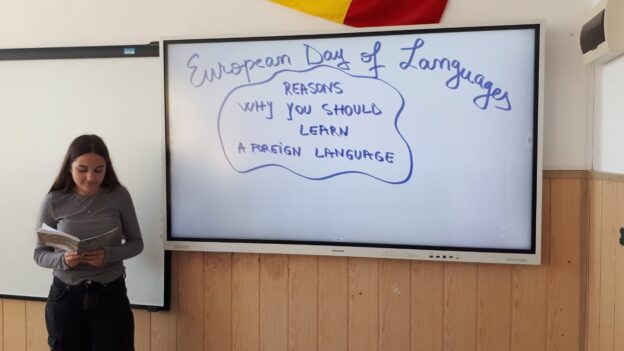 European Day of Languages
REASONS
WHY YOU SHOULD
LEARN
A FOREIGN LANGUAGE